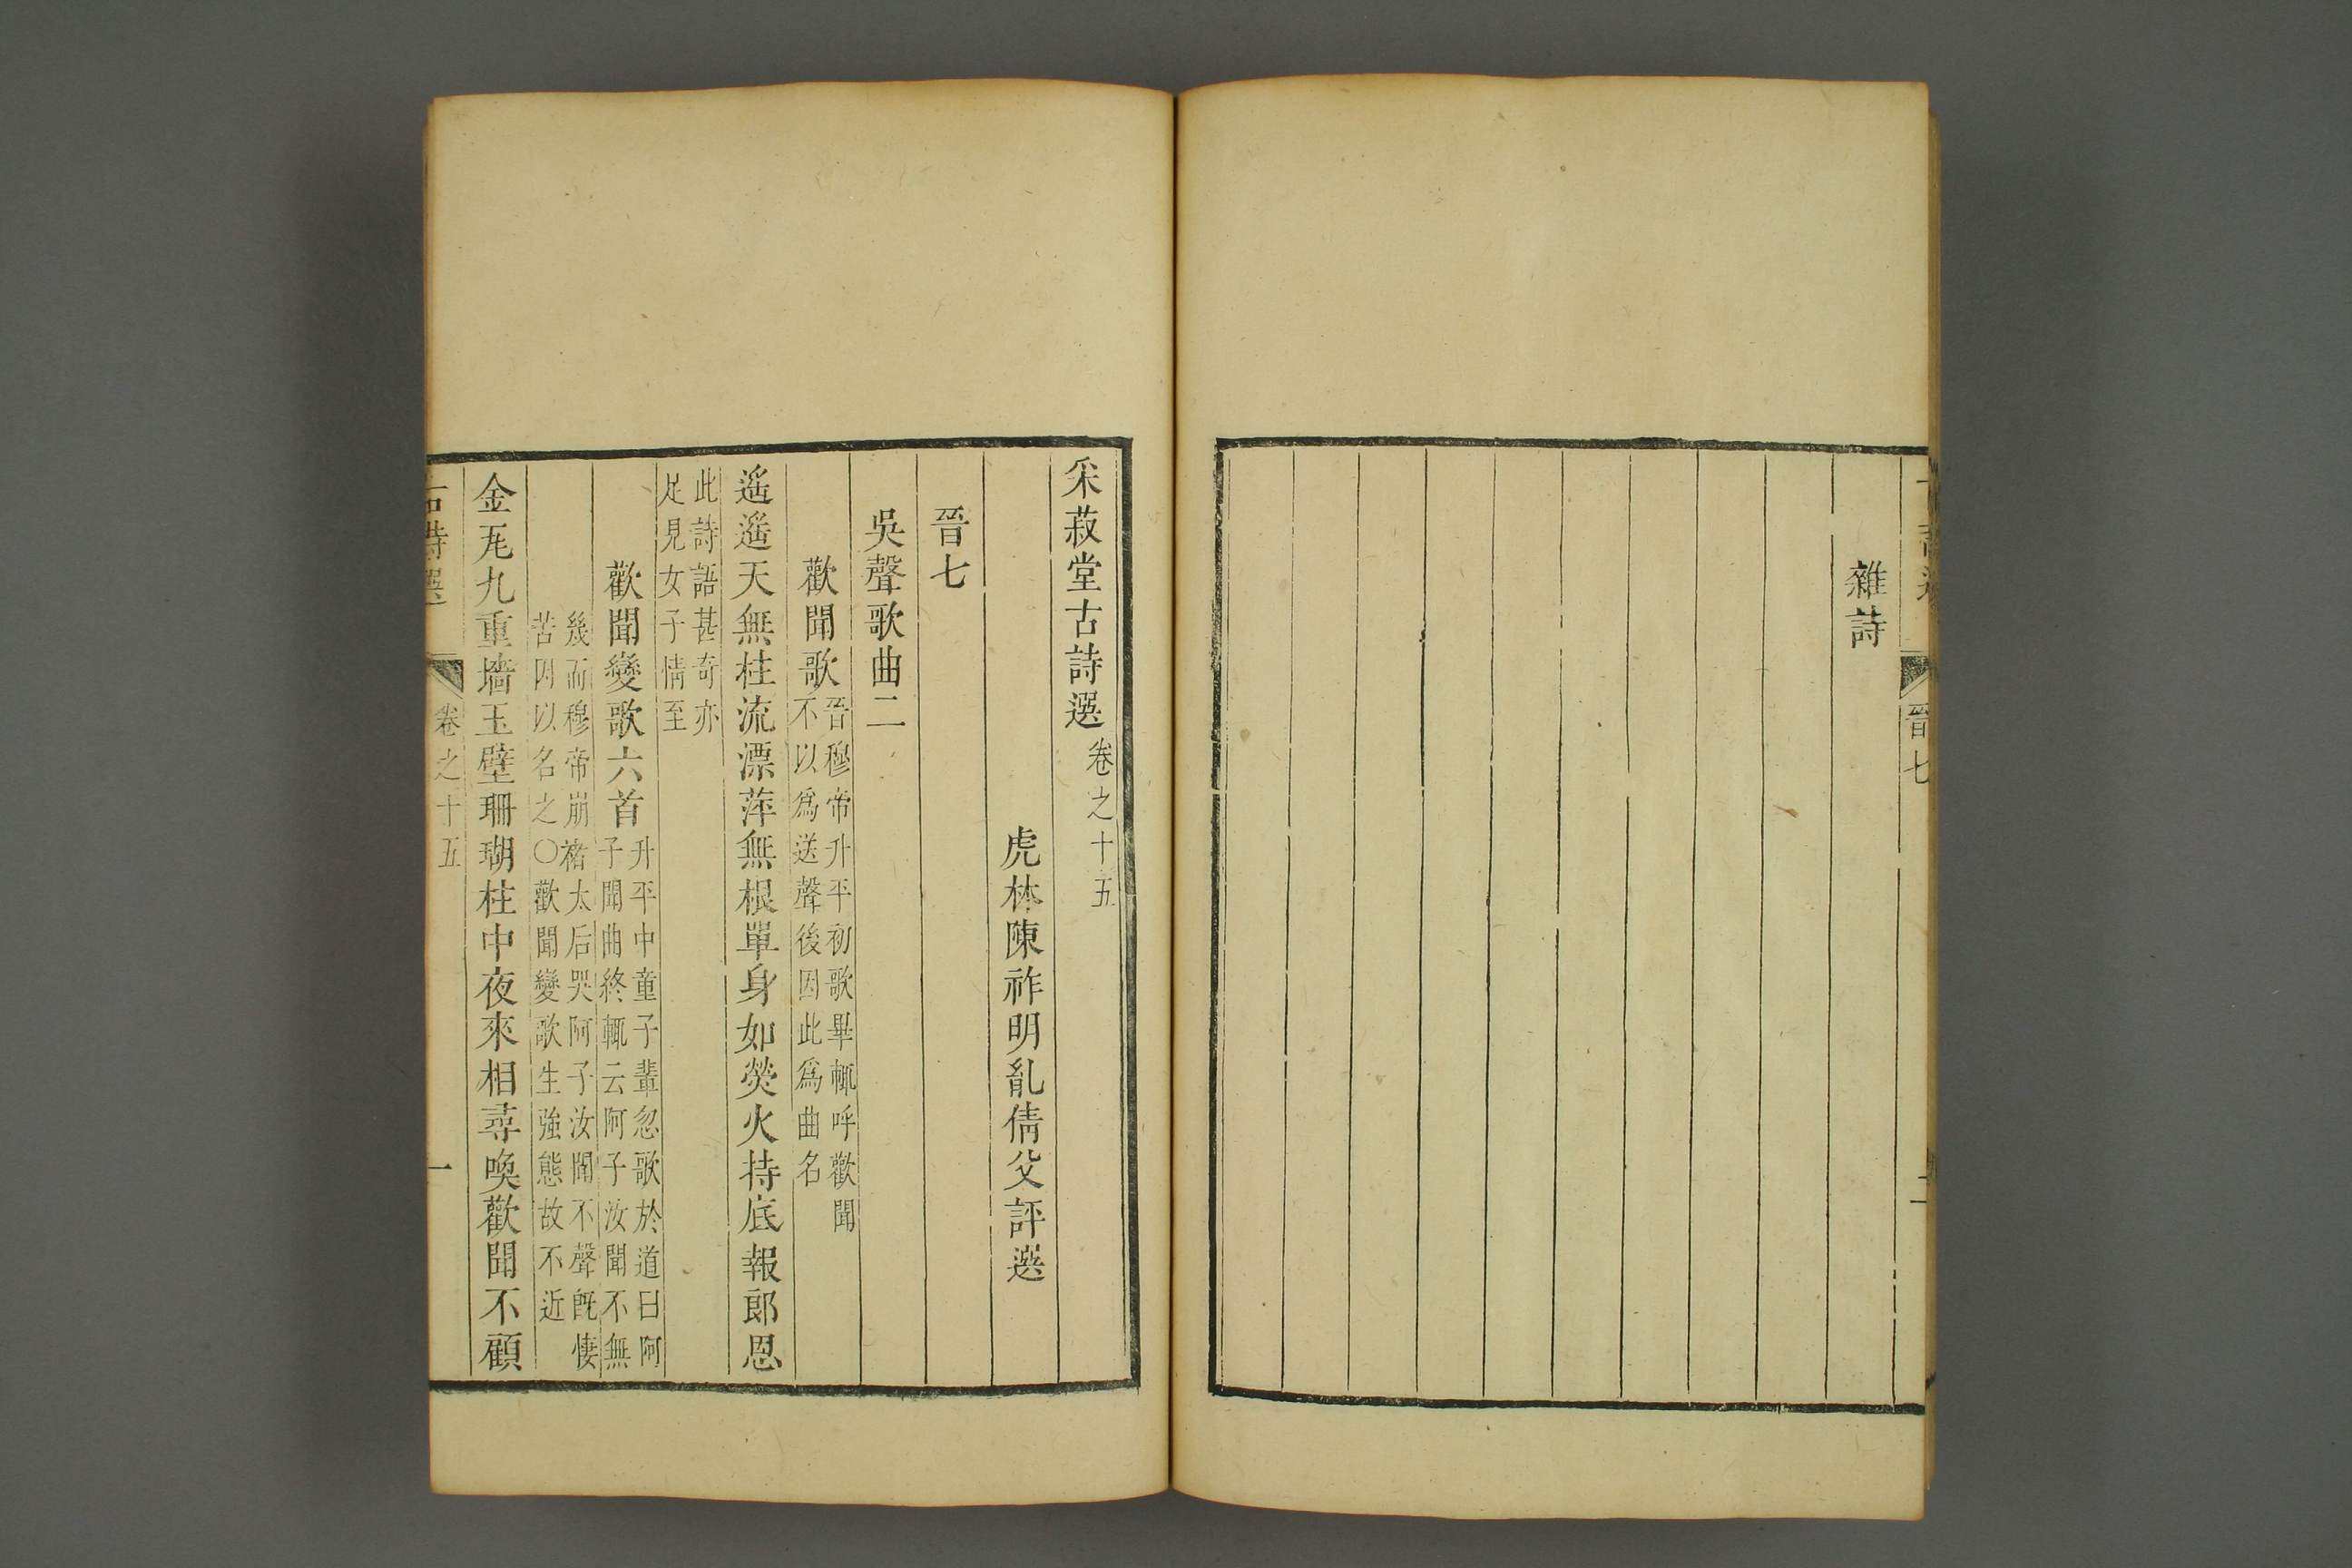 晉七
二
雜詩
采菽堂古詩選卷之十五
虎林陳祚明胤倩父評選
晉七
吳聲歌曲二
歡聞歌
晉穆帝升平初歌畢輒呼歡聞
不以爲送聲後因此爲曲名
遙遙天無柱流漂萍無根單身如熒火持底報郎恩
此詩語甚奇亦
足見女子情至
歡聞變歌六首
升平中童子輩忽歌於道曰阿
子聞曲終輒云阿子汝聞不無
幾而穆帝崩褚太后哭阿子汝聞不聲旣悽
苦因以名之〇歡聞變歌生強態故不近
金瓦九重墻玉壁珊瑚柱中夜來相尋喚歡聞不顧
古詩選
卷之十五
一